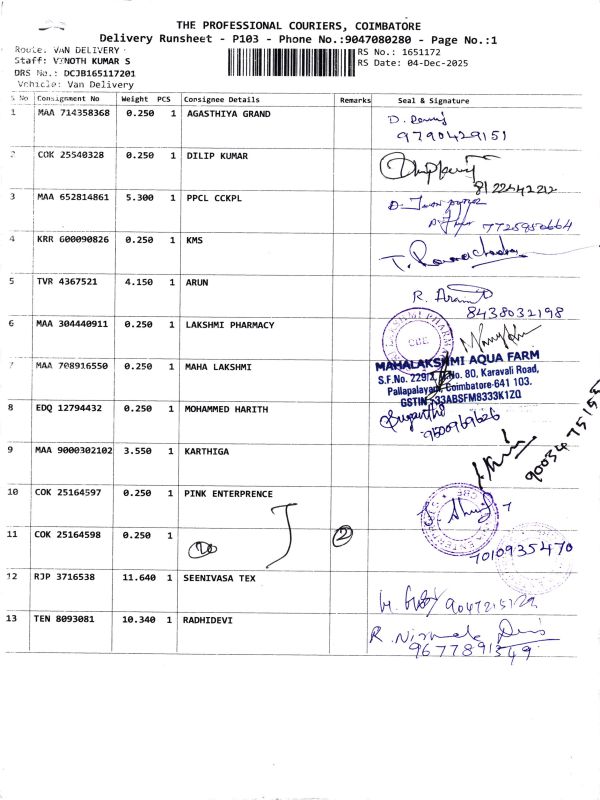 THE PROFESSIONAL COURIERS, COIMBATORE
Delivery Runsheet - P103 - Phone No.:9047080280 - Page No.:1
Route: VAN DELIVERY
RS No.: 1651172
Staff: VINOTH KUMAR S
RS Date: 04-Dec-2025
DRS No.: DCJB165117201
Vehicle: Van Delivery
S No Consignment No Weight PCS Consignee Details Remarks Seal & Signature
1 MAA 714358368 0.250 1 AGASTHIYA GRAND
9790429151
2 COK 25540328 0.250 1 DILIP KUMAR
8122542212
3 MAA 652814861 5.300 1 PPCL CCKPL
7725950664
4 KRR 600090826 0.250 1 KMS
5 TVR 4367521 4.150 1 ARUN
8438032198
6 MAA 304440911 0.250 1 LAKSHMI PHARMACY
7 MAA 708916550 0.250 1 MAHA LAKSHMI
MAHALAKSHMI AQUA FARM
S.F.No. 229/2, No. 80, Karavali Road,
Pallapalayam, Coimbatore-641 103.
GSTIN :33ABSFM8333K1ZQ
8 EDQ 12794432 0.250 1 MOHAMMED HARITH
9500969626
9 MAA 9000302102 3.550 1 KARTHIGA
10 COK 25164597 0.250 1 PINK ENTERPRENCE
11 COK 25164598 0.250 1
Do
2
7010935470
12 RJP 3716538 11.640 1 SEENIVASA TEX
13 TEN 8093081 10.340 1 RADHIDEVI
R. Nirmala Devi
9677891349